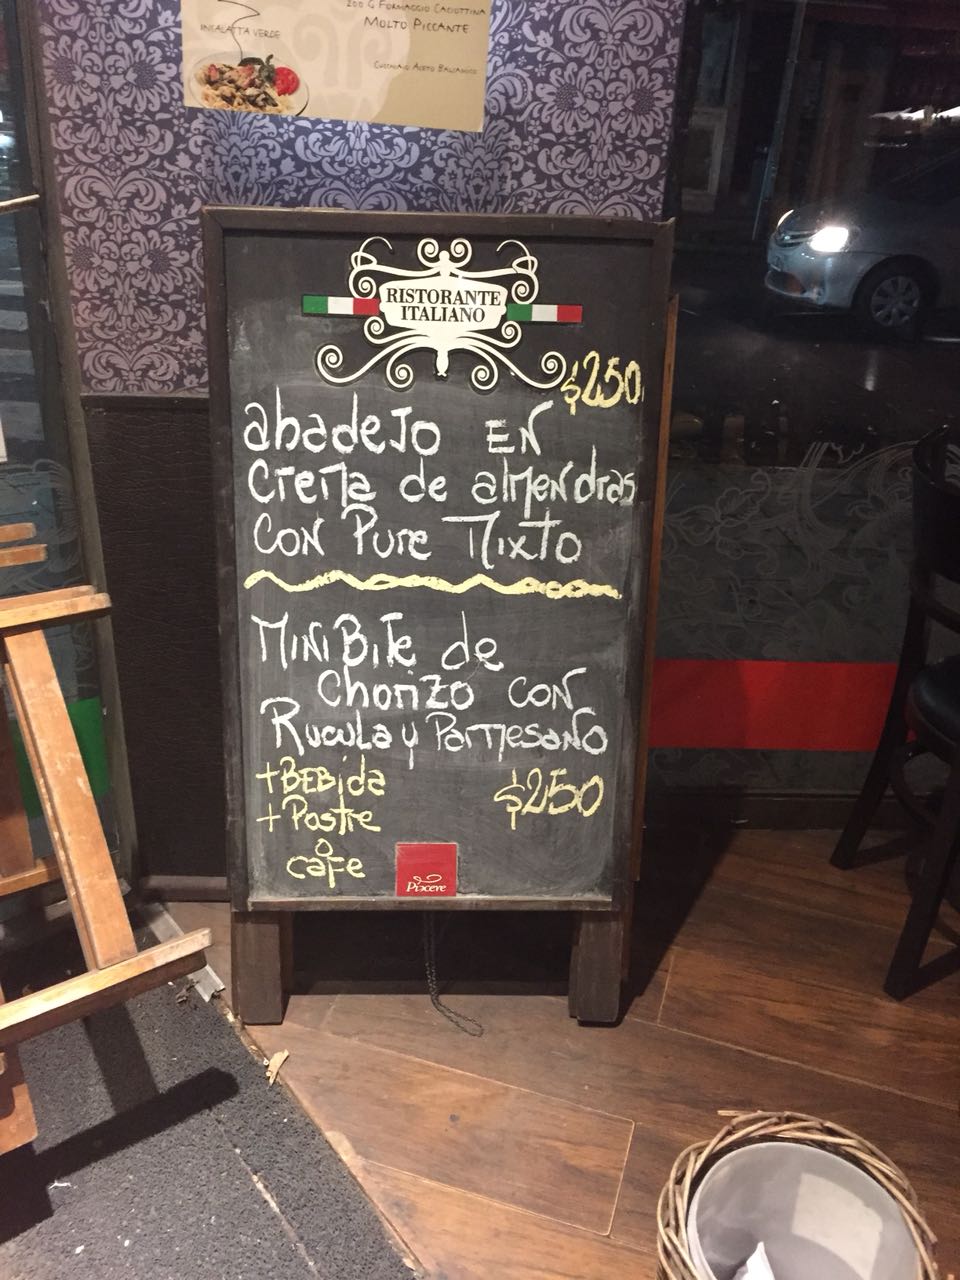 200 G FORMAGGIO CACIOTTINA
MOLTO PICCANTE
INSALATTA VERDE
CUCCHIAIO ACETO BALSAMICO
RISTORANTE
ITALIANO
$250
abadeJo EN
crema de almendras
CON Pure Mixto
MiNi BiTe de
Chorizo CON
Rucula y Parmesano
+BEBida
+Postre
$250
o
cafe
Piacere